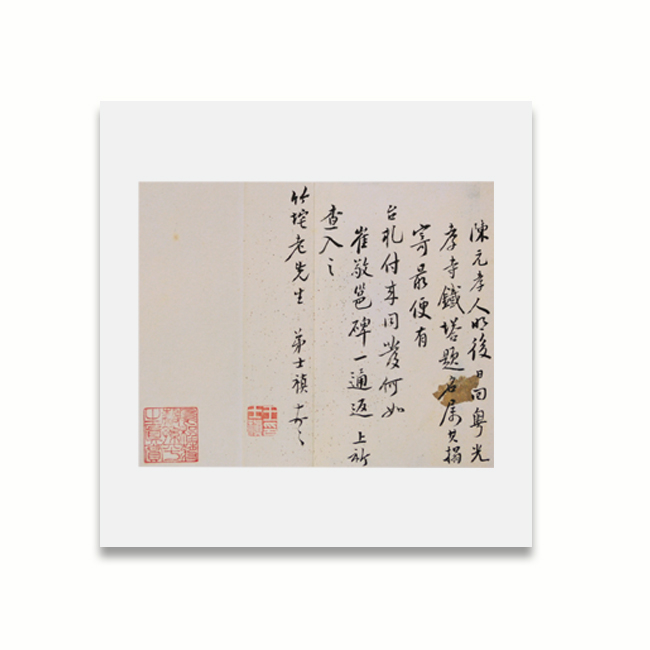 陳元孝人明後日回粵光
孝寺鐵塔題名属其搨
寄最便有
台札付来同發何如
崔敬邕碑一通返上祈
查入之
竹垞老先生 弟士禎